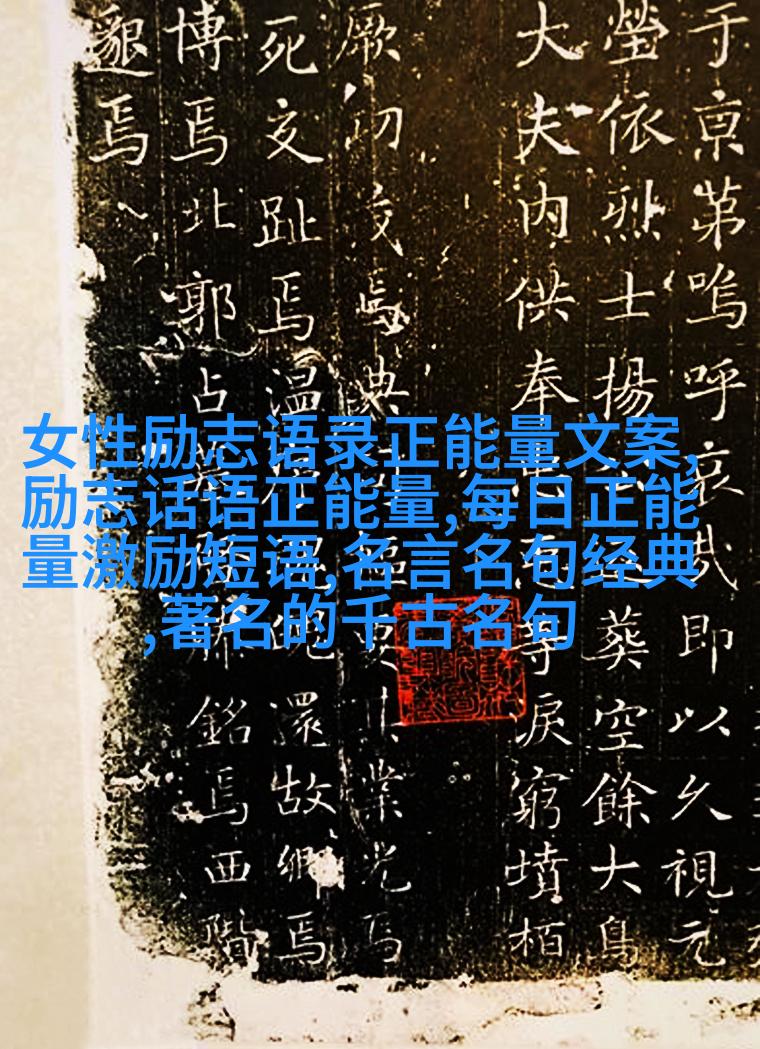 女性励志语录正能量文案,
励志话语正能量,每日正能
量激励短语,名言名句经典
,著名的千古名句
于京第嗚呼哀哉即以久視元
塋依烈士揚葬空餘大鳥
大夫内供奉等淚窮墳栢
厥功焉典業光焉
死交趾焉温還故鄉焉
博焉北郭占銘焉西階
邈焉